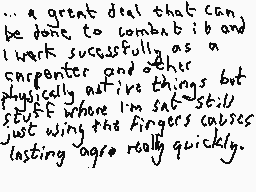 ... a great deal that can
be done to combat it and
I work sucessfully as a
carpenter and other
physically active things but
stuff where I'm sat still
just using the fingers causes
lasting agro really quickly.